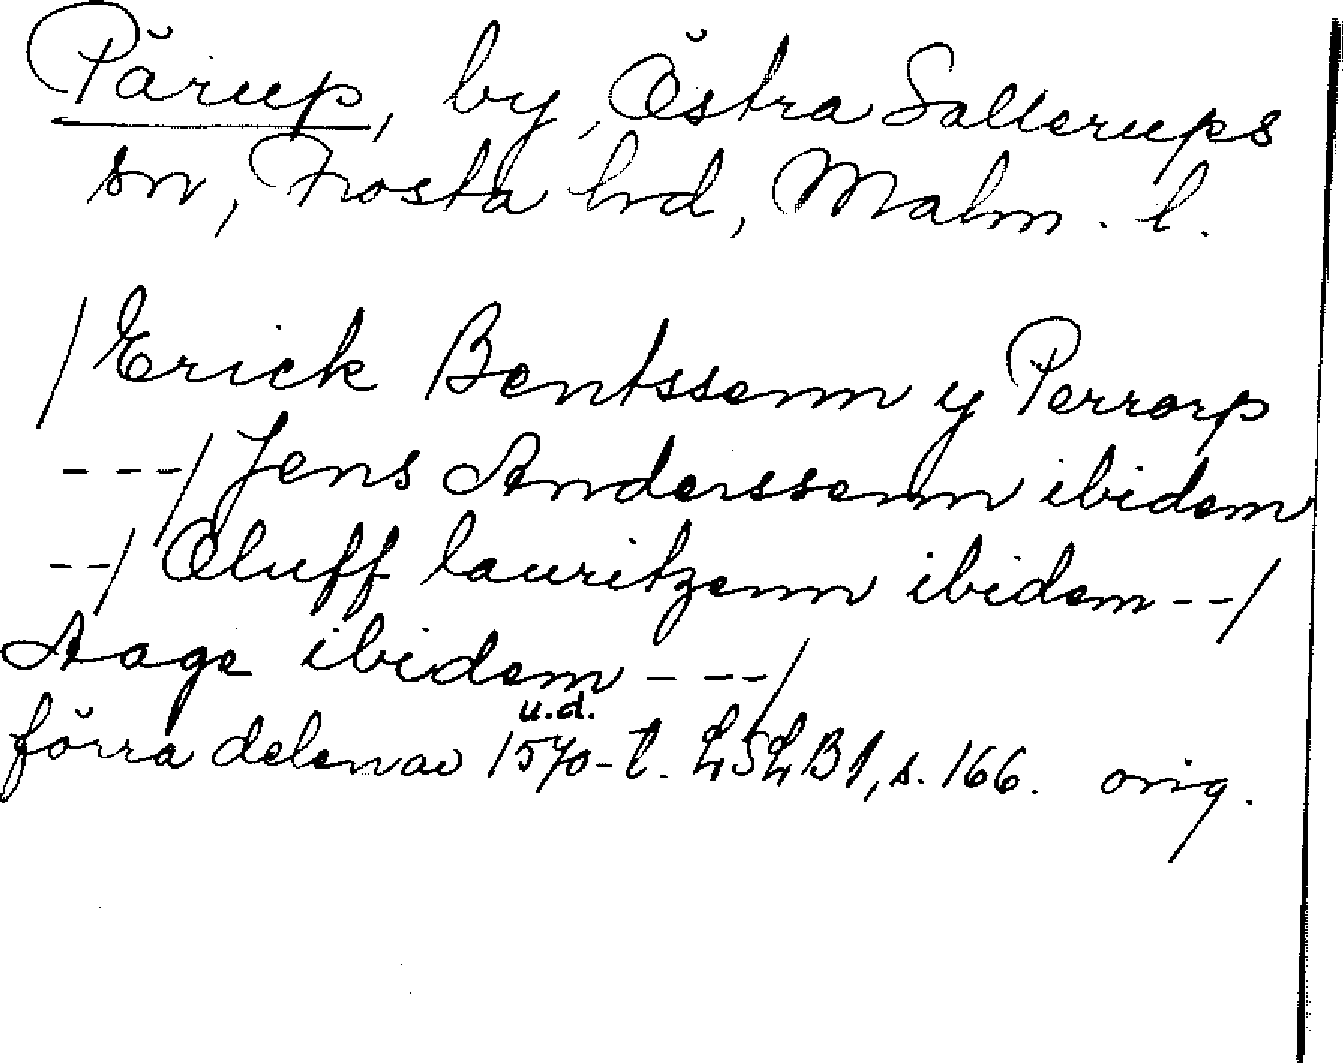 Pärup, by, Östra Sallerups
sn, Frosta hrd, Malm. l.
/Erick Bentssenn y Perrorp
---/Jens Anderssenn ibidem
--/Oluff lauritzenn ibidem--/
Aage ibidem---/
u.d.
förra delen av 1570-t. LSLB1, s. 166. orig.